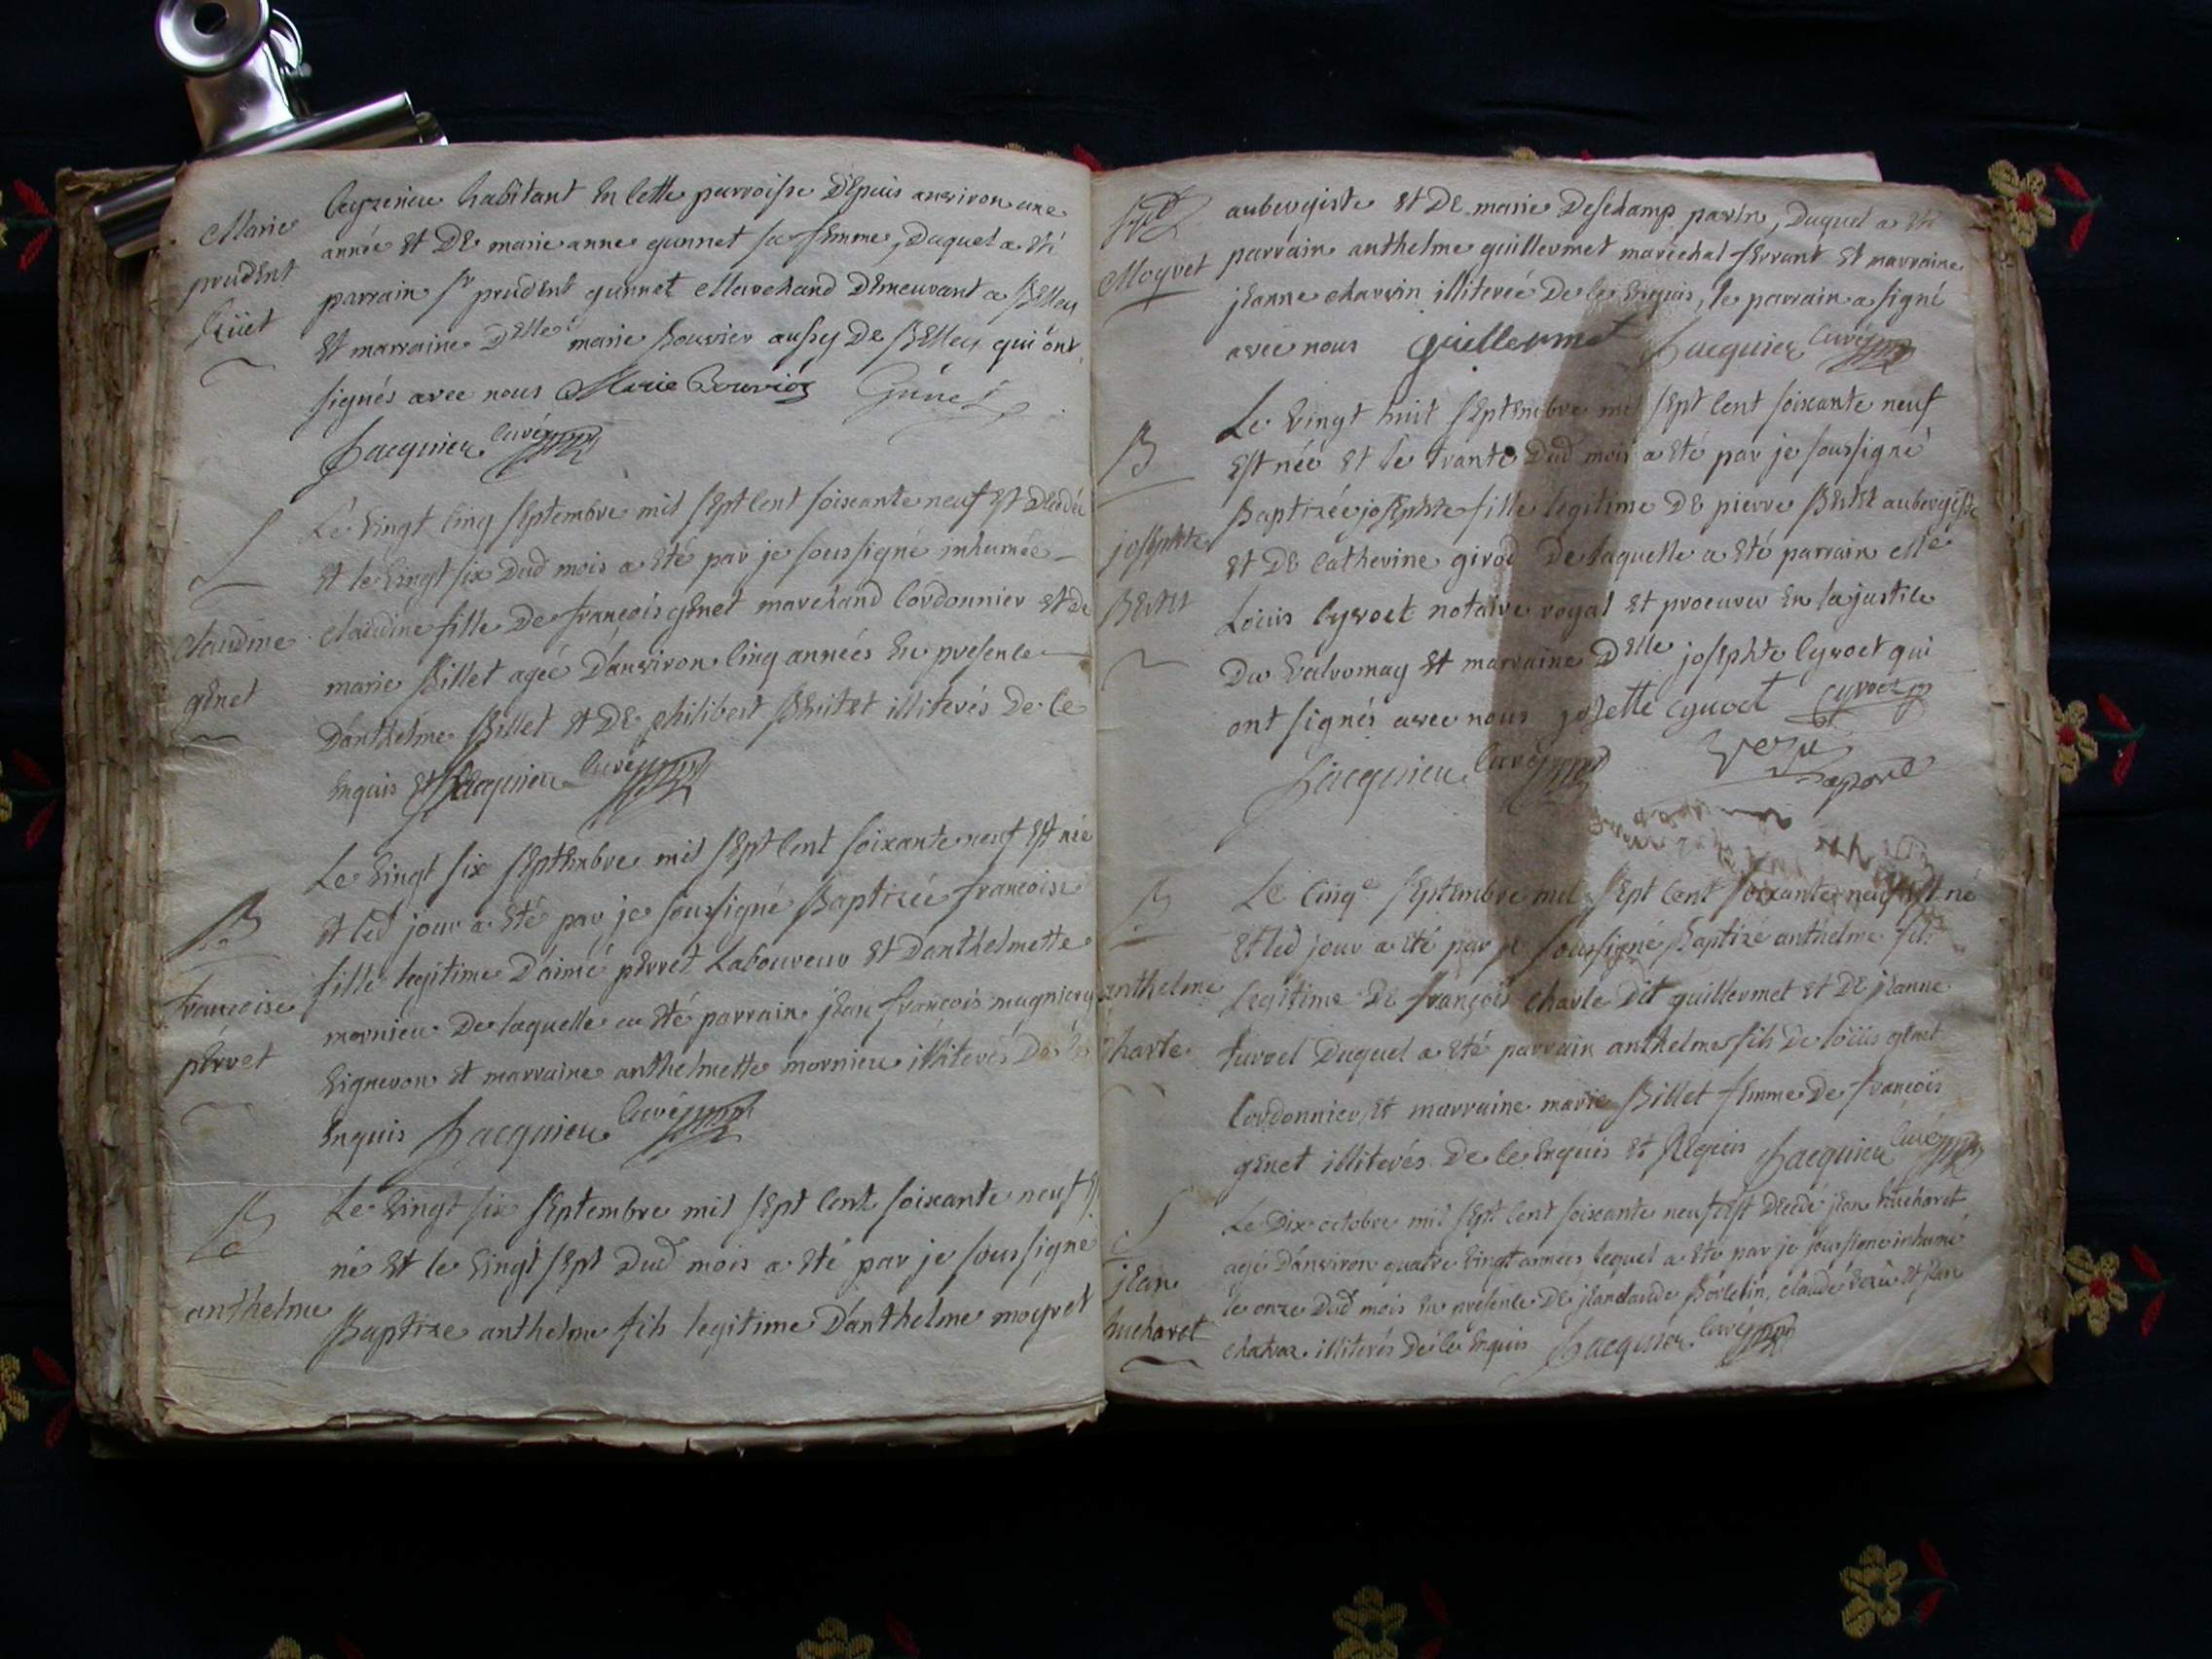 Marie
prudent
habitant En Cette parroisse D'Epuis anviron une
année Et DE marie anne gunnet sa femme, Duquel a Eté
parrain Sr prudent gunnet Marchand DEmeurant a BElley
Et marraine Delle marie Bouvier aussy De BElley qui ont
signés avec nous Marie Bouvier Gunet
Jacquier Curé
S
Claudine
gEnet
Le Vingt Cinq SEptembre mil SEpt Cent soixante neuf Est DEcédée
Et le Vingt six Dud mois a Eté par je soussigné inhumée
Claudine fille De françois gEnet marchand Cordonnier Et de
marie Billet agée D'anviron Cinq années En présence
D'anthelme Billet Et DE philibert illiterés De Ce
Enquis Et Jacquier Curé
B
francoise
pErret
Le Vingt six SEptEmbre mil SEpt Cent soixante neuf Est née
Et led jour a Eté par je soussigné Baptizée francoise
fille legitime D'aimé pErret Laboureur Et D'anthelmette
mornieu De laquelle a Eté parrain jEan francois
Vigneron Et marraine anthelmette mornieu illiterés De Ce
Enquis Jacquier Curé
B
anthelme
Le Vingt six SEptembre mil SEpt Cent soixante neuf Est
né Et le Vingt SEpt Dud mois a Eté par je soussigné
Baptize anthelme fils legitime D'anthelme moyret
Moyret
aubergiste Et DE marie DesChamp parin, Duquel a Eté
parrain anthelme guillermet maréchal fErrant Et marraine
jEanne charvin illiterée De Ce Enquis, le parrain a signé
avec nous guillermet Jacquier Curé
B
josEphte
BErtet
Le Vingt huit SEptembre mil SEpt Cent soixante neuf
Est née Et le trante Dud mois a Eté par je soussigné
Baptizée josEphte fille legitime DE pierre BErtet aubergiste
Et DE Catherine girod De laquelle a Eté parrain
Louis Cyvoct notaire royal Et procureur En la justice
Du Valromay Et marraine Delle josEphte Cyvoct qui
ont signés avec nous josette cyvoct Cyvoct
Jacquier Curé
B
anthelme
Charle
Le Cinqe SEptembre mil SEpt Cent soixante neuf Est né
Et led jour a Eté par je soussigné Baptizé anthelme fils
Legitime DE françois Charle Dit guillermet Et DE jEanne
furrel Duquel a Eté parrain anthelme fils De loüis gEnet
Cordonnier, Et marraine marie Billet fEmme De françois
gEnet illiterés De Ce Enquis Et REquis Jacquier Curé
S
jEan
hucharet
Le Dix octobre mil SEpt Cent soixante neuf Est DEcédé jEan hucharet
agé D'anviron quatre Vingt années lequel a Eté par je soussigné inhumé
le onze Dud mois En présence DE jEanclaude claude Et jEan
illiterés De Ce Enquis Jacquier Curé